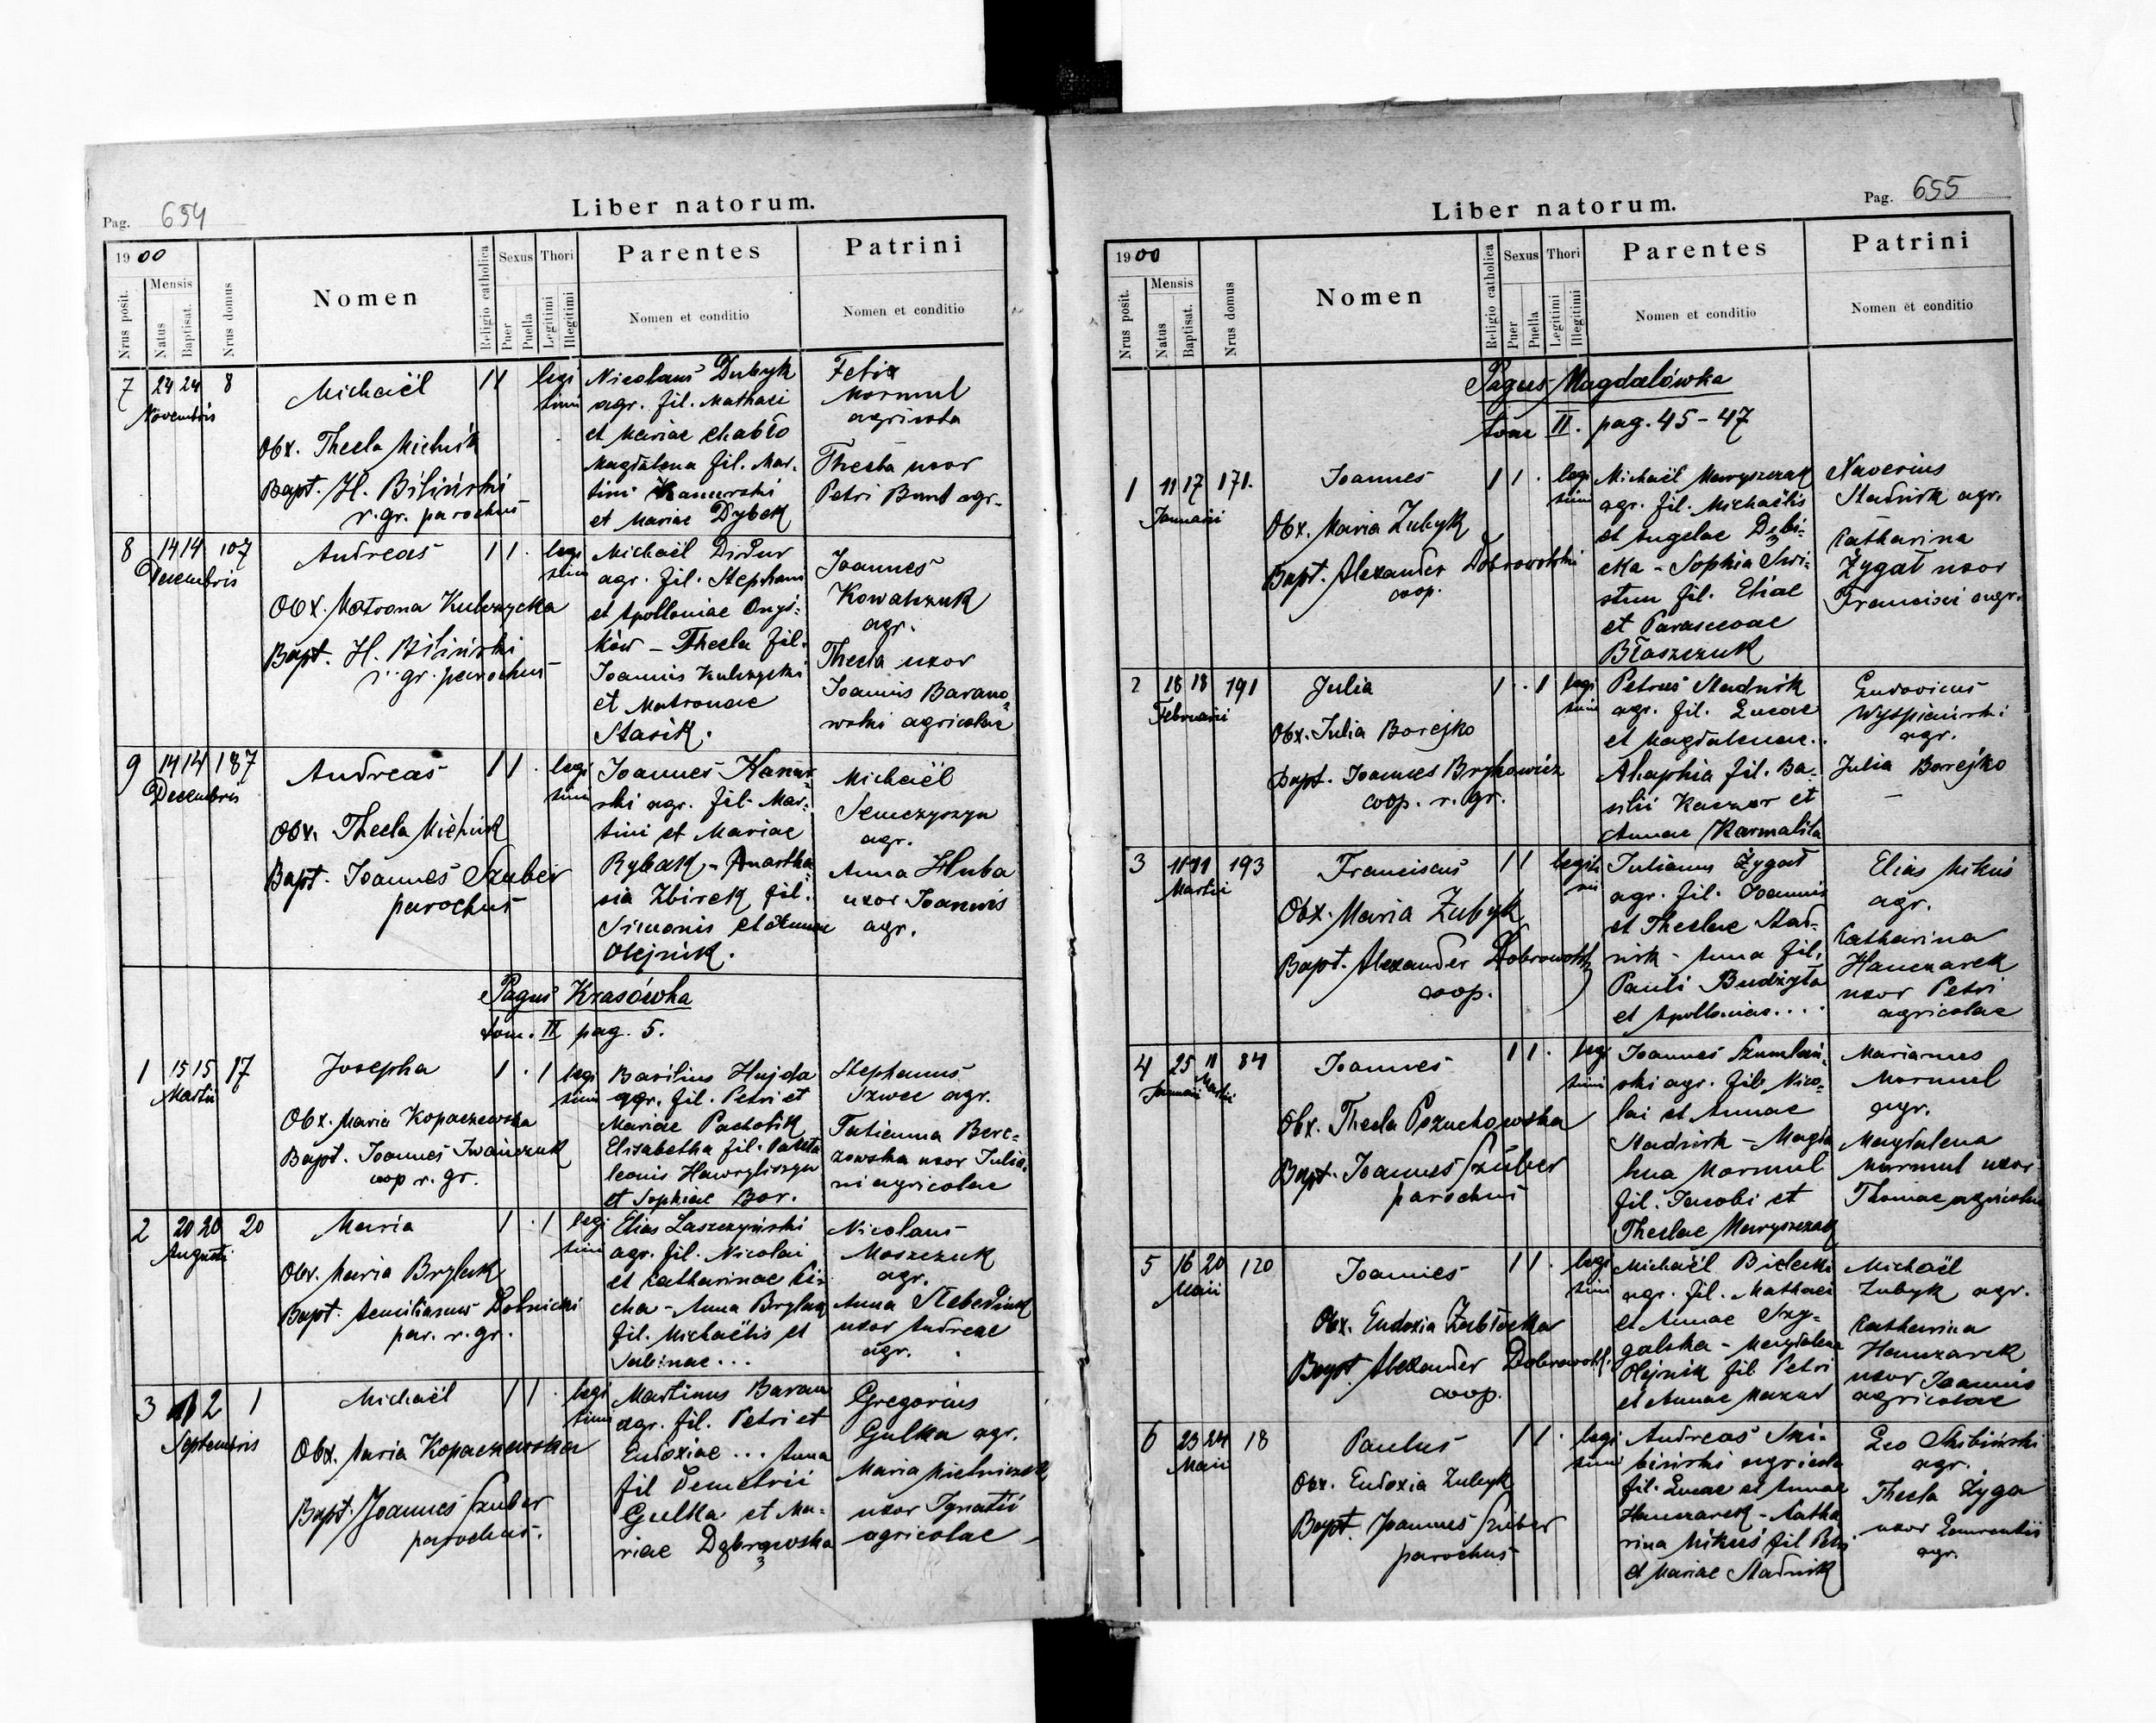 Pag. 654
Liber natorum.
1900
Nrus posit.
Mensis
Natus
Baptisat.
Nrus domus
Nomen
Religio catholica
Sexus
Puer
Puella
Thori
Legitimi
Illegitimi
Parentes
Nomen et conditio
Patrini
Nomen et conditio
7 24 24 8
Novembris
Michaël
Obx. Thecla Michnik
Bapt. H. Biliński
r. gr. parochus
1 1
legi
timi
Nicolaus Dubyk
agr. fil. Mathaei
et Mariae Chabło
Magdalena fil. Mar-
tini
et Mariae Dybek
Felix
Mormul
agricola
Thecla uxor
Petri Bunt agr.
8 14 14 107
Decembris
Andreas
Obx. Matrona Kulczycka
Bapt. H. Biliński
r. gr. parochus
1 1 .
legi
timi
Michaël Didur
agr. fil. Stephani
et Apolloniae Onyś-
ków - Thecla fil.
Joannis Kulczycki
et Matronae
Stasik.
Joannes
Kowalczuk
agr.
Thecla uxor
Joannis Barano-
wski agricolae
9 14 14 187
Decembris
Andreas
Obx. Thecla Michnik
Bapt. Joannes Szuber
parochus
1 1 .
legi
timi
Joannes Kanar-
ski agr. fil. Mar-
tini et Mariae
Rybak - Anasta-
sia Zbirek fil.
Simonis et Annae
Olejnik.
Michaël
Semczyszyn
agr.
Anna Hluba
uxor Joannis
agr.
Pagus Krasówka
tom. II pag. 5.
1 15 15 17
Martii
Josepha
Obx. Maria Kopaczewska
Bapt. Joannes Iwańczuk
coop r. gr.
1 . 1
legi
timi
Basilius Hujda
agr. fil. Petri et
Mariae Pacholik
Elisabetha fil. Panta
leonis Hawryliszyn
et Sophiae Bor.
Stephanus
Szwec agr.
Tatianna Bere-
zowska uxor Julia-
ni agricolae
2 20 20 20
Augusti
Maria
Obx. Maria Brylak
Bapt. Aemilianus Dolnicki
par. r. gr.
1 . 1
legi
timi
Elias Laszczyński
agr. fil. Nicolai
et Catharinae Ci-
cha - Anna Brylak
fil. Michaëlis et
Sabinae...
Nicolaus
Moszczuk
agr.
Anna
uxor Andreae
agr.
3 1 2 1
Septembris
Michaël
Obx. Maria Kopaczewska
Bapt. Joannes Szuber
parochus.
1 1 .
legi
timi
Martinus Baran
agr. fil. Petri et
Eudoxiae ... Anna
fil Demetrii
Gulka et Ma-
riae Dąbrowska
Gregorius
Gulka agr.
Maria Mielniczek
uxor Ignatii
agricolae
Pag. 655
Liber natorum.
1900
Nrus posit.
Mensis
Natus
Baptisat.
Nrus domus
Nomen
Religio catholica
Sexus
Puer
Puella
Thori
Legitimi
Illegitimi
Parentes
Nomen et conditio
Patrini
Nomen et conditio
Pagus Magdalówka
tom II. pag. 45-47
1 11 17 171.
Januarii
Joannes
Obx. Maria Zubyk
Bapt. Alexander Dobrowolski
coop.
1 1 .
legi
timi
Michaël Maryszczak
agr. fil. Michaëlis
et Angelae Dębi-
cka - Sophia Swi-
stun fil. Eliae
et Parascevae
Błaszczuk
Xaverius
Stadnik agr.
Catharina
Żygał uxor
Francisci agr.
2 18 18 191
Februarii
Julia
Obx. Julia Borejko
Bapt. Joannes Brykowicz
coop. r. gr.
1 . 1
legi
timi
Petrus Stadnik
agr. fil. Lucae
et Magdalenae..
Ahaphia fil. Ba-
silii Kaczor et
Annae Karmalita
Ludovicus
Wyspiański
agr.
Julia Borejko
3 11 11 193
Martii
Franciscus
Obx. Maria Zubyk
Bapt. Alexander Dobrowolski
coop.
1 1
legiti
mi
Julianus Żygał
agr. fil. Joannis
et Theclae Stad-
nik - Anna fil.
Pauli Budzyła
et Apolloniae....
Elias Mikuś
agr.
Catharina
Hanczarek
uxor Petri
agricolae
4 25 11 84
Januarii Martii
Joannes
Obx. Thecla Pszuchowska
Bapt. Joannes Szuber
parochus
1 1 .
legi
timi
Joannes Szumlań-
ski agr. fil. Nico-
lai et Annae
Stadnik - Magda
lena Mormul
fil. Jacobi et
Theclae Maryszczak
Marianus
Mormul
agr.
Magdalena
Mormul uxor
Thomae agricolae
5 16 20 120
Maii
Joannes
Obx. Eudoxia Zabłocka
Bapt. Alexander Dobrowolski
coop.
1 1 .
legi
timi
Michaël Bielecki
agr. fil. Mathaei
et Annae Szy-
galska - Magdalena
Olejnik fil Petri
et Annae Mazur
Michaël
Zubyk agr.
Catharina
Hanczarek
uxor Joannis
agricolae
6 23 24 18
Maii
Paulus
Obx. Eudoxia Zubyk
Bapt. Joannes Szuber
parochus
1 1 .
legi
timi
Andreas Ski-
biński agricola
fil. Lucae et Annae
Hanczarek - Catha
rina Mikuś fil Petri
et Mariae Stadnik
Leo Skibiński
agr.
Thecla Żyga
uxor Laurentii
agr.